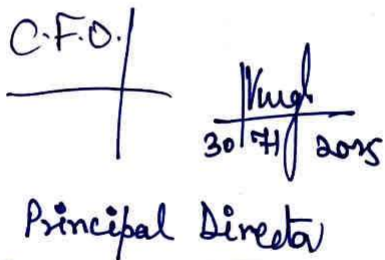 C.F.O.
30 7 2025
Principal Director